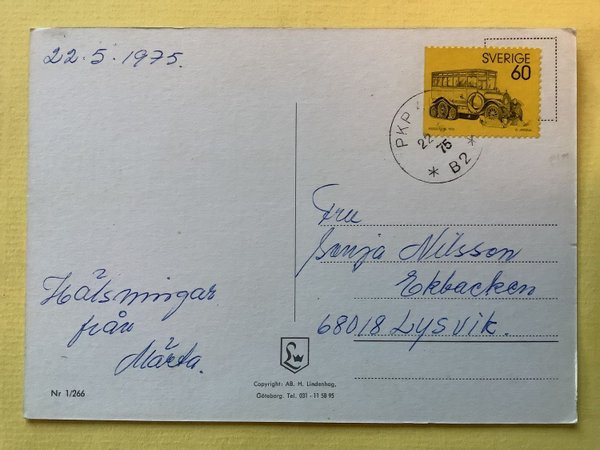 22.5.1975.
SVERIGE
60
PKP
22
75
* B2 *
Fru
Sonja Nilsson
Ekbacken
68018 LYSVIK.
Hälsningar
från
Märta.
Nr 1/266
Copyright: AB. H. Lindenhag,
Göteborg. Tel. 031 - 11 58 95